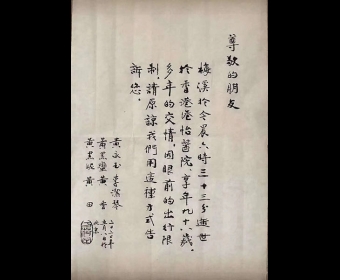 尊敬的朋友
梅溪於今晨六時三十三分逝世
於香港港怡醫院。享年九十八歲。
多年的交情，因眼前的出行限
制，請原諒我們用這種方式告
訴您。
黃永玉 李潔琴
黃黑蠻 黃香
黃黑妮 黃田